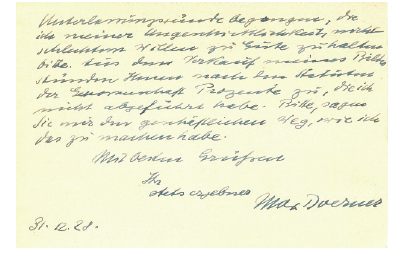 Unterlassungssünde begangen, die
ich meiner Ungeschicklichkeit, nicht
schlechtem Willen zu Gute zu halten
bitte. Aus dem Verkauf meines Bildes
stünden Ihnen nach den Statuten
der Genossenschaft Prozente zu, die ich
nicht abgeführt habe. Bitte, sagen
Sie mir den geschäftlichen Weg, wie ich
das zu machen habe.
Mit besten Grüßen
Ihr
stets ergebener
Max Doerner
31. 12. 28.